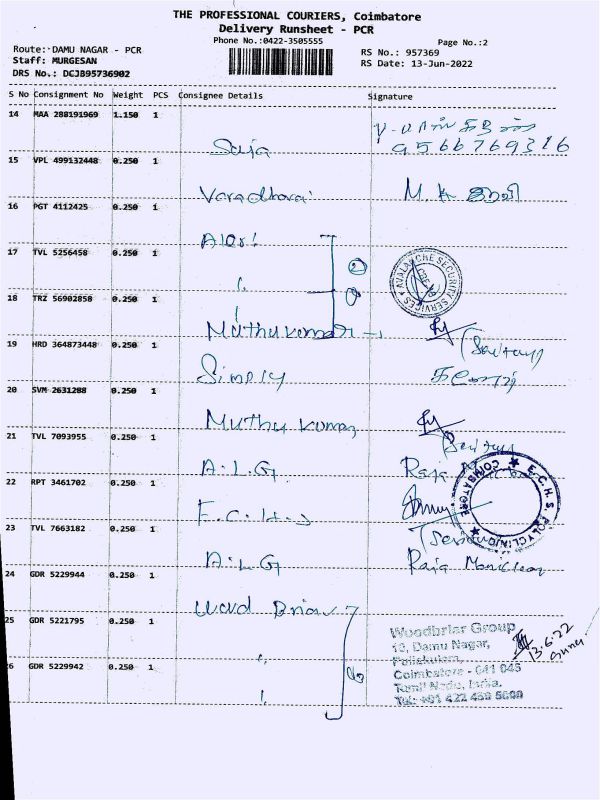 THE PROFESSIONAL COURIERS, Coimbatore
Delivery Runsheet - PCR
Phone No.:0422-3505555
Page No.:2
Route: DAMU NAGAR - PCR
RS No.: 957369
Staff: MURGESAN
RS Date: 13-Jun-2022
DRS No.: DCJB95736902
S No Consignment No Weight PCS Consignee Details Signature
14 MAA 288191969 1.150 1
9566769316
15 VPL 499132448 0.250 1
Varadharai M.K
16 PGT 4112425 0.250 1
17 TVL 5256458 0.250 1
AVALANCHE SECURITY SERVICES
CBE
18 TRZ 56902858 0.250 1
Muthukumar
19 HRD 364873448 0.250 1
Simply
20 SVM 2631288 0.250 1
Muthu Kumar
21 TVL 7093955 0.250 1
A.L.G Raja
22 RPT 3461702 0.250 1
E.C.H.S
E.C.H.S POLYCLINIC COIMBATORE
23 TVL 7663182 0.250 1
A.L.G Raja
24 GDR 5229944 0.250 1
25 GDR 5221795 0.250 1
Woodbriar Group
13, Damu Nagar,
Puliakulam,
Coimbatore - 641 045
Tamil Nadu, India.
13.6.22
26 GDR 5229942 0.250 1